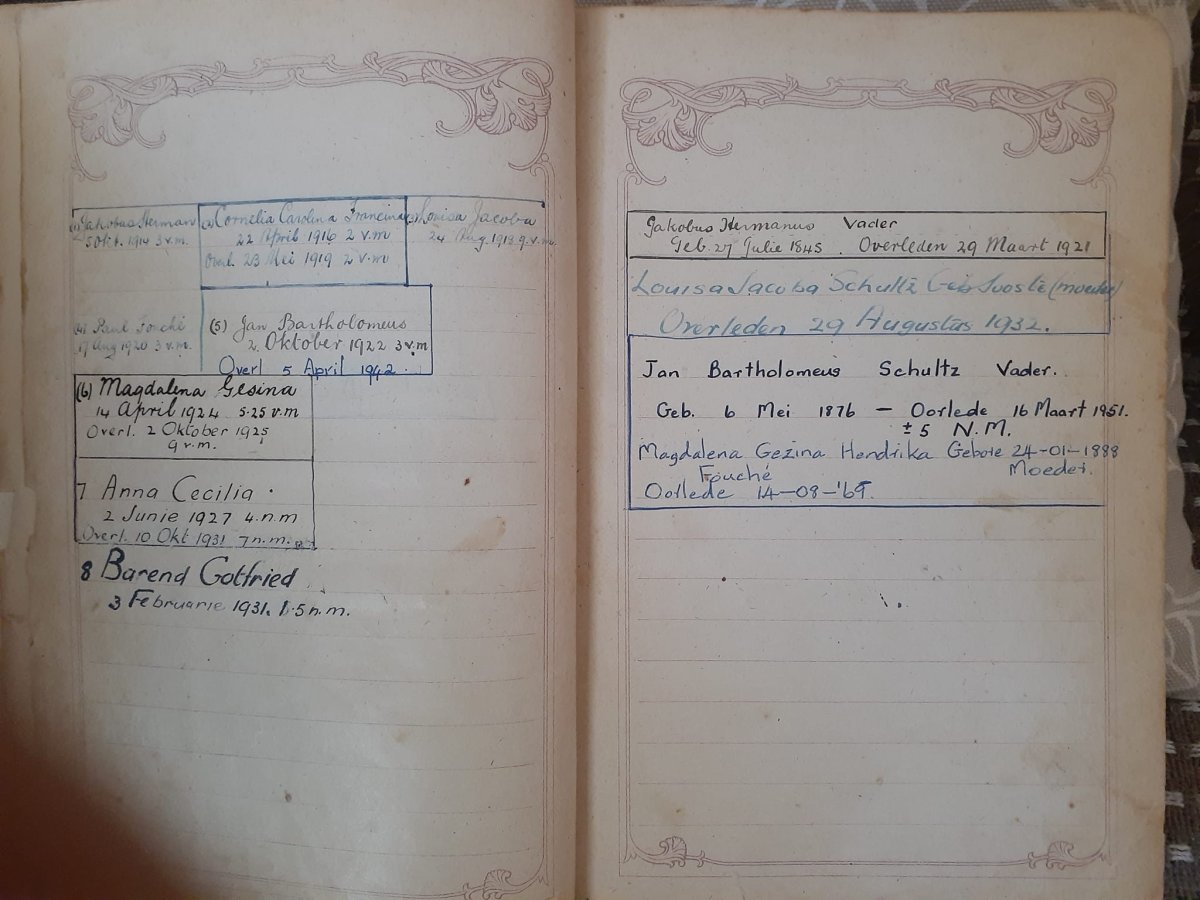 (1) Jakobus Herman
5 Okt. 1914 3 v.m.
(2) Cornelia Carolina Francina
22 April 1916 2 v.m
Overl. 23 Mei 1919 2 v.m
(3) Louisa Jacoba
24 Aug. 1918 9.v.m.
(4) Paul Fouché
17 Aug 1920 3 v.m.
(5) Jan Bartholomeus
2. Oktober 1922 3 v.m
Overl 5 April 1942.
(6) Magdalena Gesina
14 April 1924 5.25 v.m
Overl. 2 Oktober 1925
9 v.m.
7 Anna Cecilia.
2 Junie 1927 4.n.m
Overl. 10 Okt 1931 7 n.m.
8 Barend Gotfried
3 Februarie 1931. 1.5 n.m.
Jakobus Hermanus Vader
Geb. 27 Julie 1845. Overleden 29 Maart 1921
Louisa Jacoba Schultz Geb Jooste (moeder)
Overleden 29 Augustus 1932.
Jan Bartholomeus Schultz Vader.
Geb. 6 Mei 1876 — Oorlede 16 Maart 1951.
±5 N.M.
Magdalena Gezina Hendrika Gebore 24-01-1888
Fouché Moeder.
Oorlede 14-08-'69.